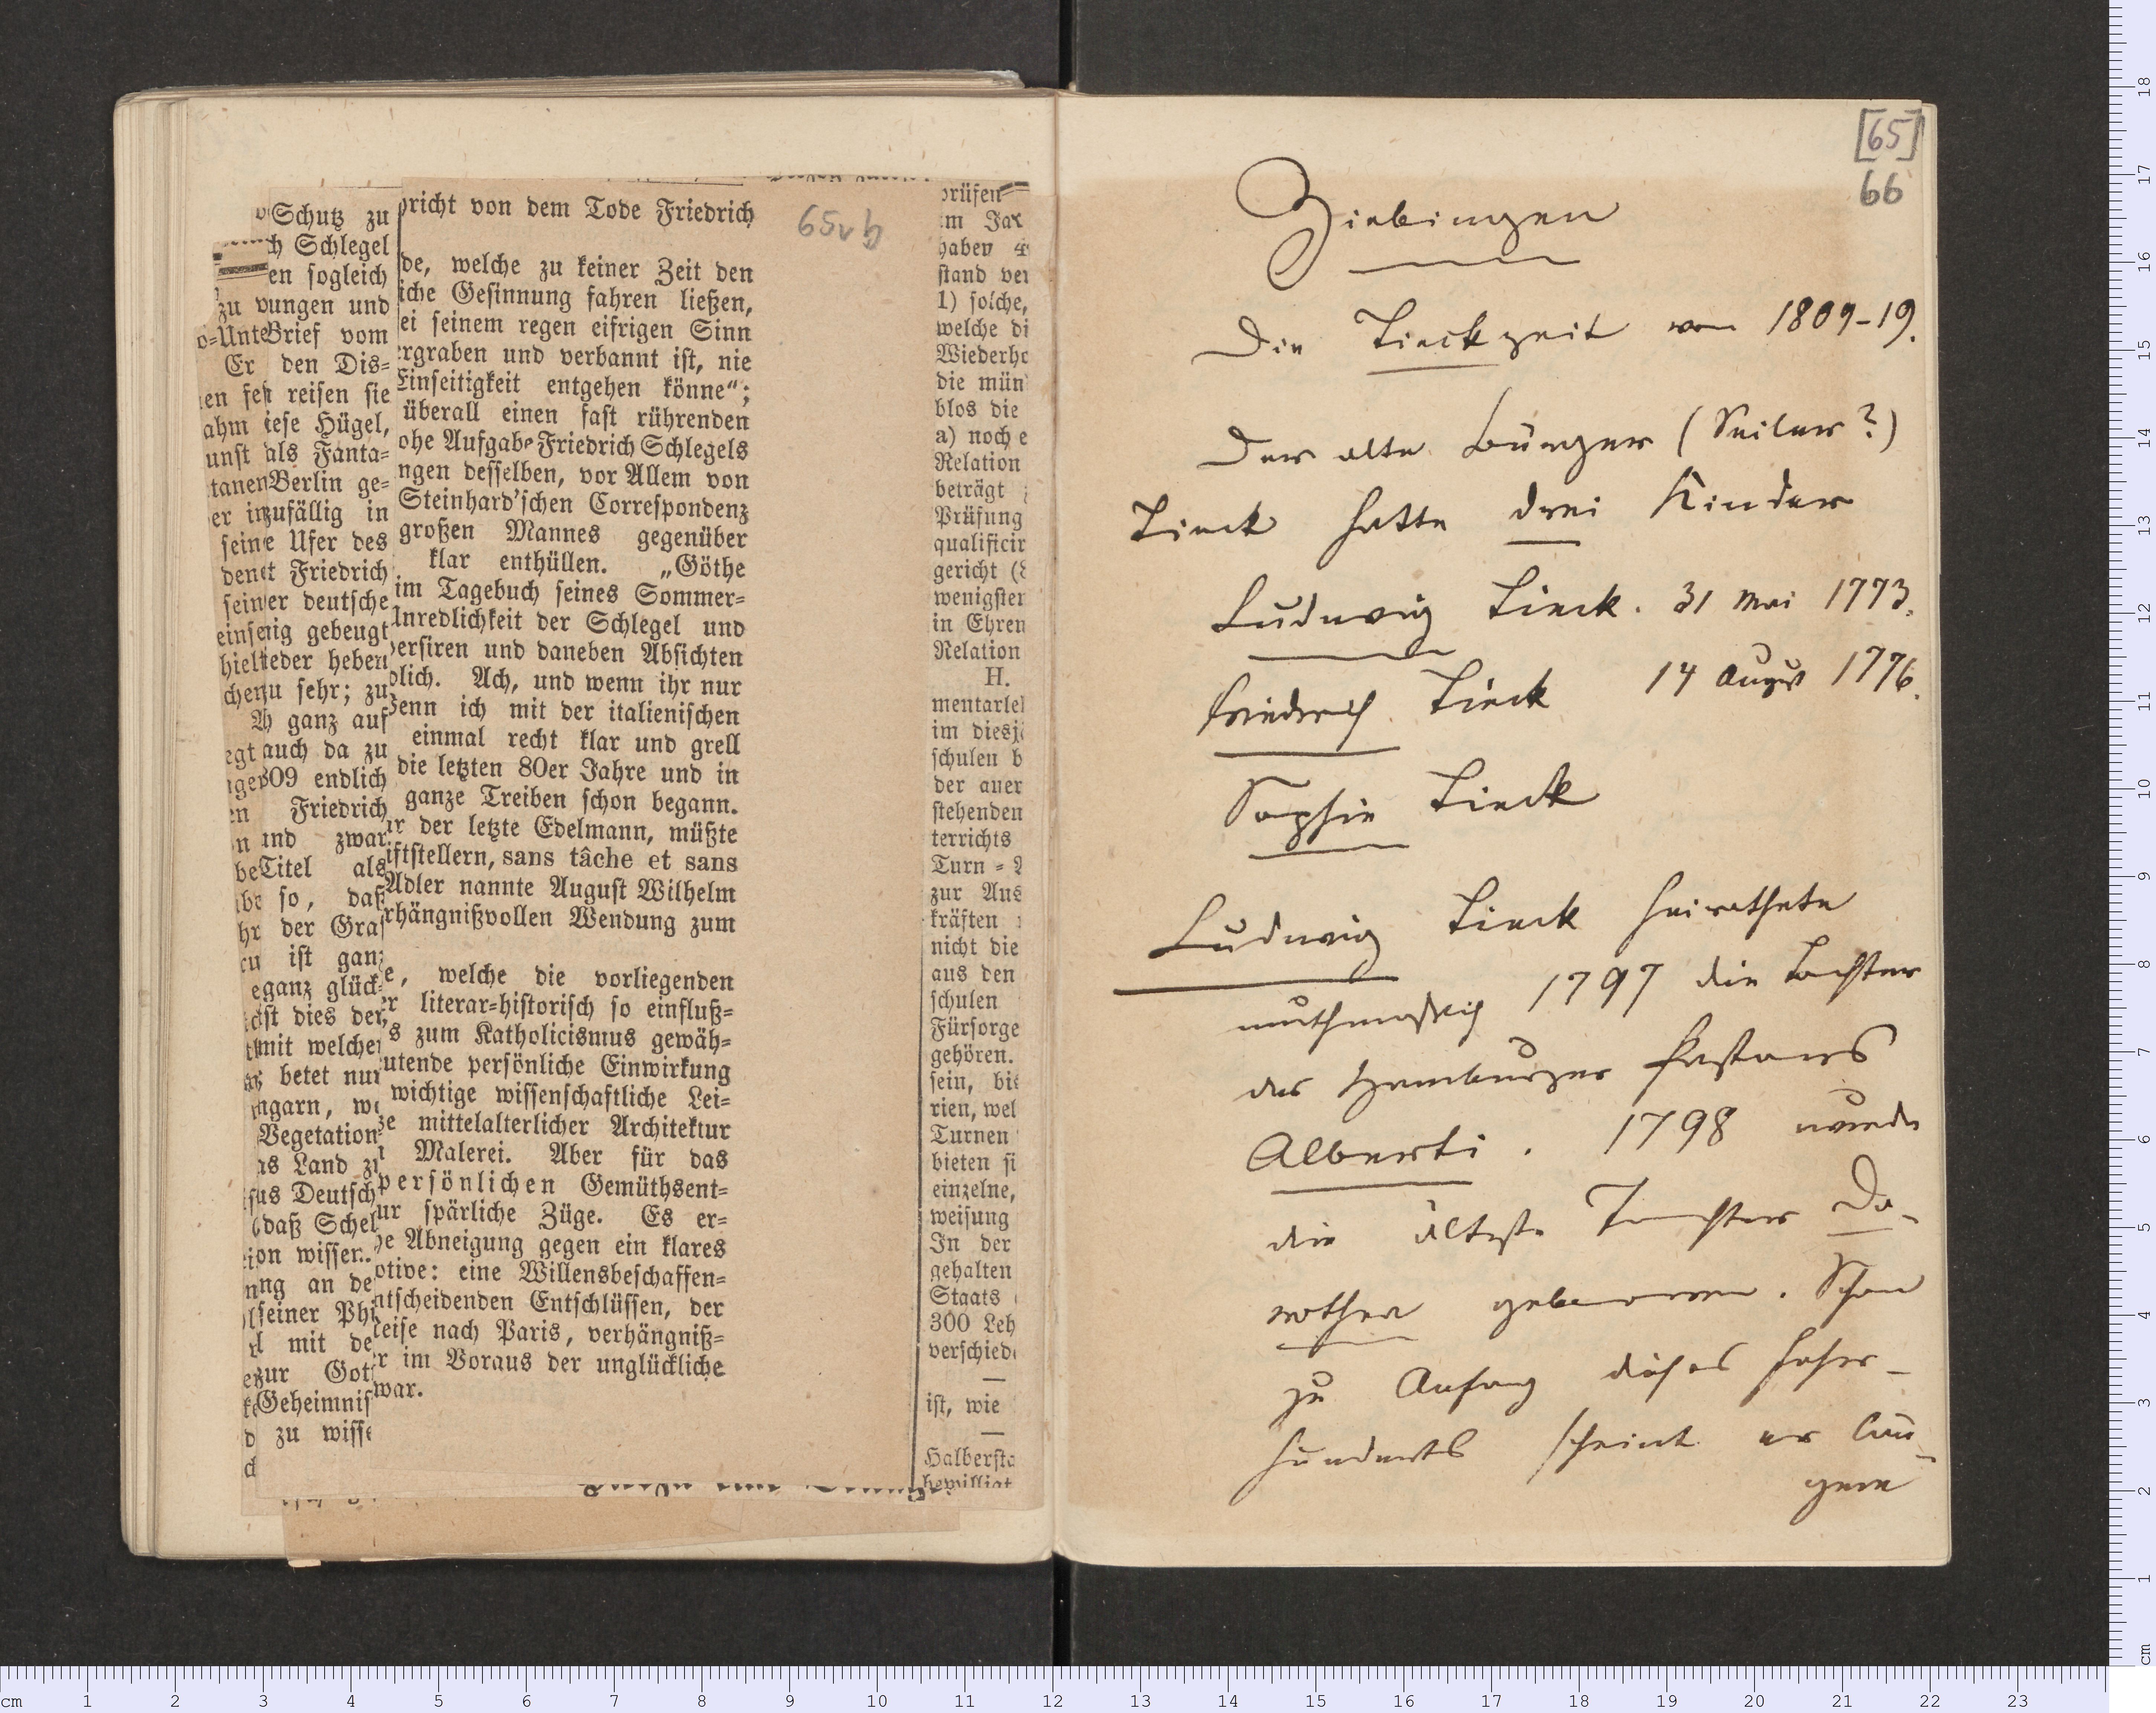 v Schutz zu
ch Schlegel
en sogleich
zu vungen und
o=Unte Brief vom
Er den Dis=
en fest reisen sie
ahm iese Hügel,
unst als Fanta=
tanen Berlin ge=
er in zufällig in
seine Ufer des
den t Friedrich
sein er deutsche
einse tig gebeugt
hielt ieder heben
chen zu sehr; zu
h ganz auf
egt auch da zu
gen 809 endlich
en Friedrich
n und zwar
be Titel als
be so, daß
hr der Graf
cu ist ganz
e ganz glück=
ist dies der,
mit welcher
betet nur
ngarn, we
Vegetation
as Land zu
sus Deutsch
daß Schel
ion wissen.
ng an de
seiner Phi
l mit de
zur Got
Geheimnis
d zu wisse
d
pricht von dem Tode Friedrich
de, welche zu keiner Zeit den
iche Gesinnung fahren ließen,
ei seinem regen eifrigen Sinn
ergraben und verbannt ist, nie
Einseitigkeit entgehen könne“;
überall einen fast rührenden
ohe Aufgabe Friedrich Schlegels
ngen desselben, vor Allem von
Steinhard’schen Correspondenz
großen Mannes gegenüber
klar enthüllen. „Göthe
im Tagebuch seines Sommer=
Unredlichkeit der Schlegel und
persiren und daneben Absichten
blich. Ach, und wenn ihr nur
Denn ich mit der italienischen
einmal recht klar und grell
die letzten 80er Jahre und in
ganze Treiben schon begann.
ur der letzte Edelmann, müßte
iftstellern, sans tâche et sans
Adler nannte August Wilhelm
rhängnißvollen Wendung zum
e, welche die vorliegenden
er literar=historisch so einfluß=
s zum Katholicismus gewäh=
utende persönliche Einwirkung
wichtige wissenschaftliche Lei=
ze mittelalterlicher Architektur
n Malerei. Aber für das
persönlichen Gemüthsent=
ur spärliche Züge. Es er=
he Abneigung gegen ein klares
otive: eine Willensbeschaffen=
ntscheidenden Entschlüssen, der
Reise nach Paris, verhängniß=
r im Voraus der unglückliche
war.
65vb
prüfen
im Jar
haben 4
stand ver
1) solche,
welche di
Wiederho
die mün
blos die
a) noch e
Relation
beträgt
Prüfung
qualificir
gericht (
wenigster
in Ehren
Relation
H.
mentarleh
im diesj
schulen b
der aner
stehenden
terrichts
Turn =
zur Aus
kräften
nicht die
aus den
schulen
Fürsorge
gehören.
sein, bis
rien, wel
Turnen
bieten si
einzelne,
weisung
In der
gehalten
Staats
300 Leh
verschied
ist, wie
Halbersta
bewilligt
[65]
66
Ziebingen
Die Tieckzeit von 1809–19.
Der alte Bürger (Seiler?)
Tieck hatte drei Kinder
Ludwig Tieck. 31 Mai 1773.
Friedrich Tieck 14 August 1776.
Sophie Tieck
Ludwig Tieck heirathete
muthmaßlich 1797 die Tochter
des Hamburger Pastors
Alberti. 1798 wurde
die älteste Tochter Do-
rothea geboren. Schon
zu Anfang dieses Jahr-
hunderts scheint er län-
gere